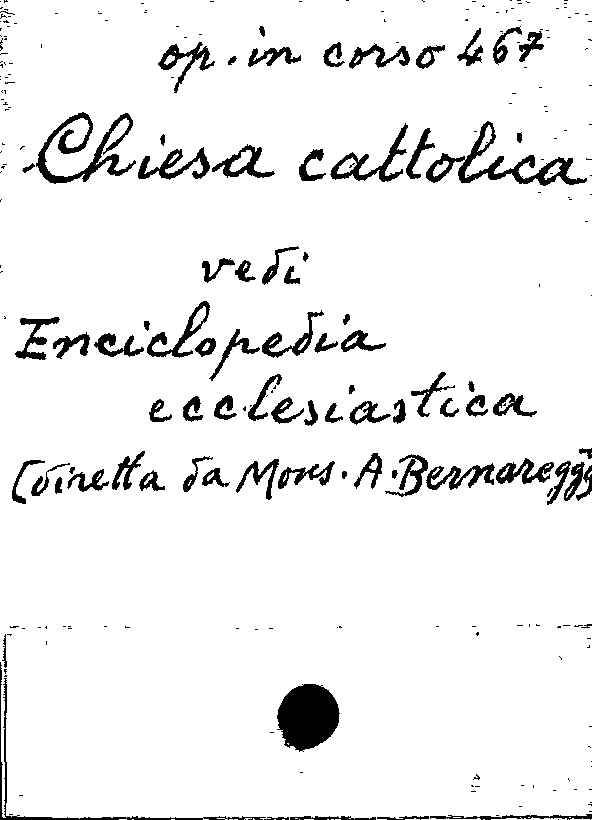 op. in corso 467
Chiesa cattolica
vedi
Enciclopedia
ecclesiastica
[diretta da Mons. A. Bernareggi]